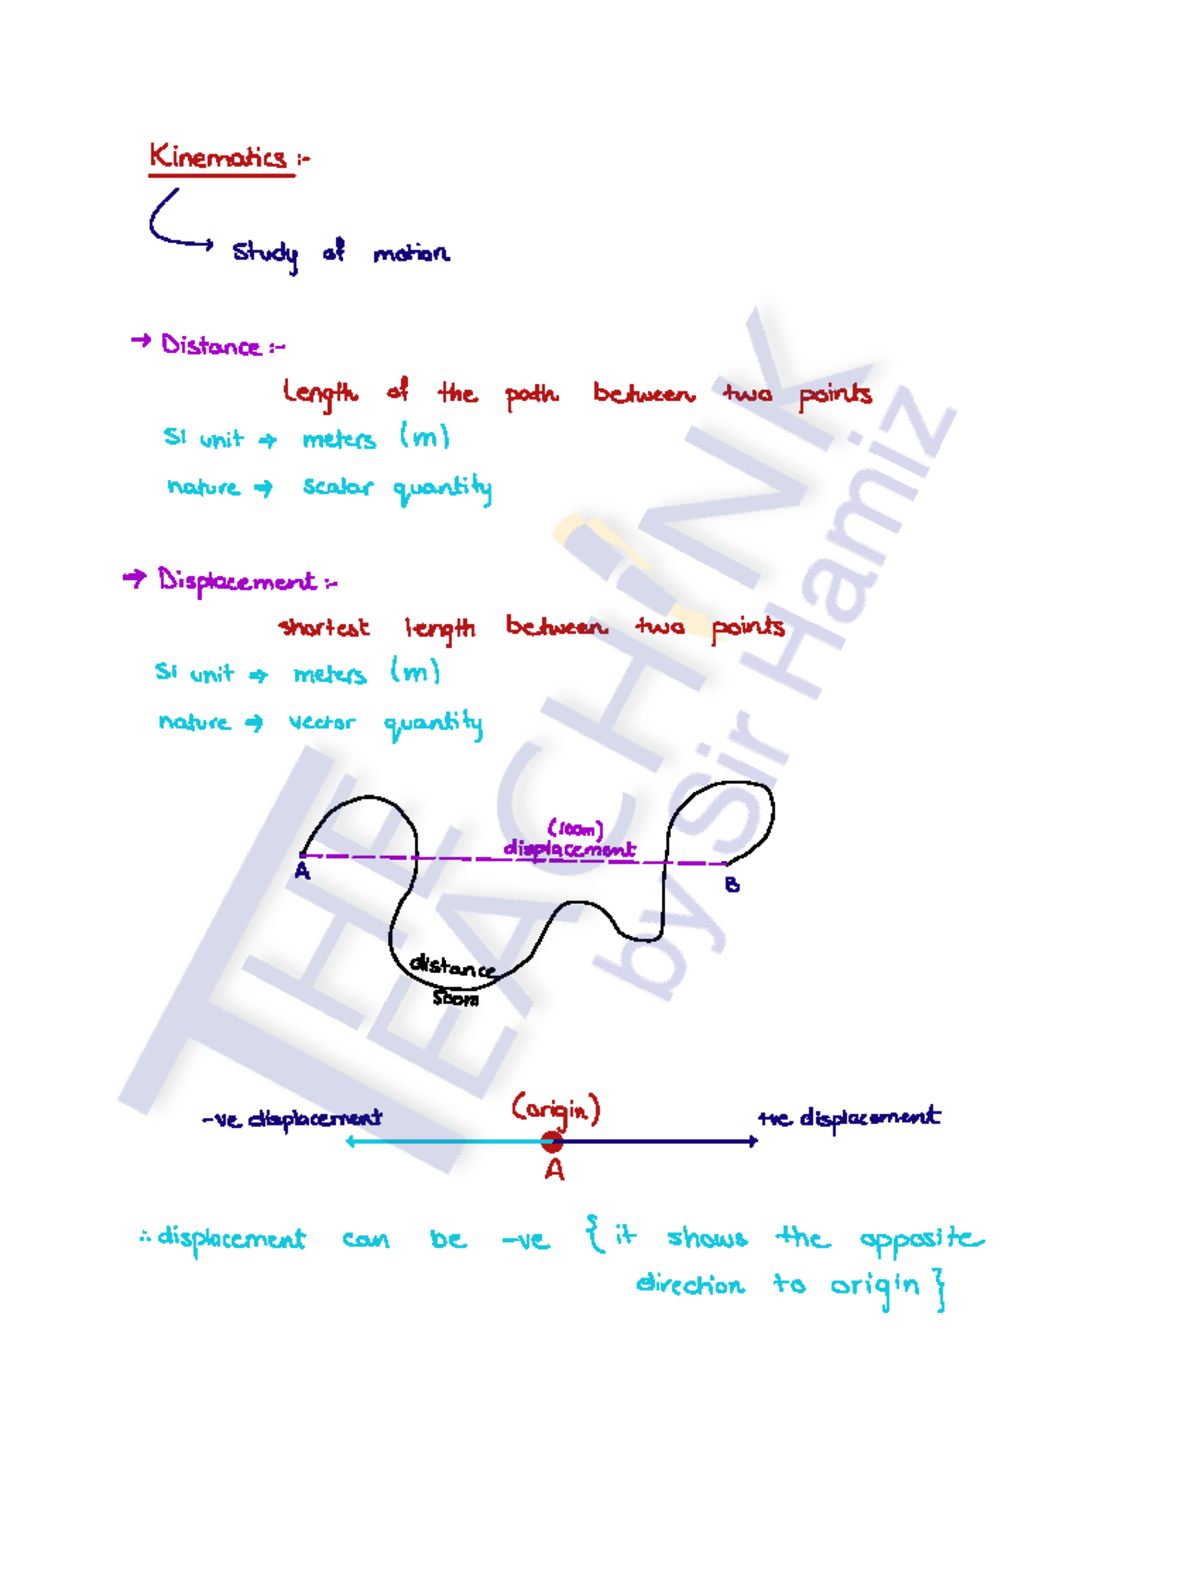 Kinematics :-
Study of motion
→ Distance :-
Length of the path between two points
SI unit → meters (m)
nature → scalar quantity
→ Displacement :-
shortest length between two points
SI unit → meters (m)
nature → vector quantity
(100m)
displacement
A
B
distance
500m
(origin)
-ve displacement
+ve displacement
A
∴ displacement can be -ve { it shows the opposite
direction to origin }
THE
TEACH!NK
by Sir Hamiz